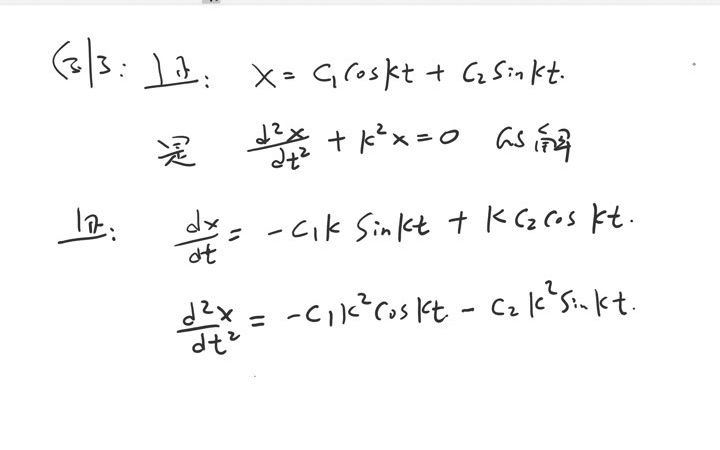 例3: 证: x = C₁ cos kt + C₂ sin kt.
是 d²x/dt² + k²x = 0 的解
证: dx/dt = -C₁k sin kt + kC₂ cos kt.
d²x/dt² = -C₁k² cos kt - C₂k² sin kt.